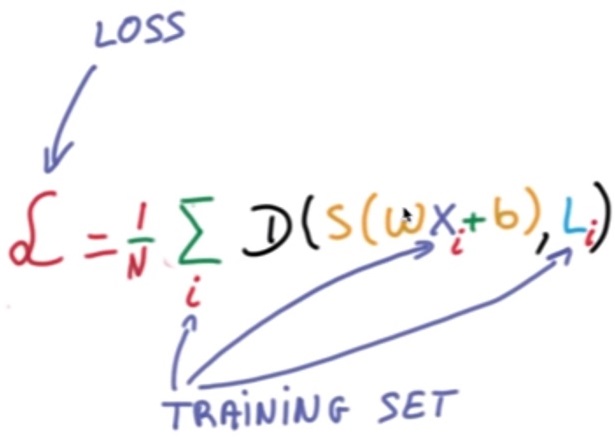 LOSS
ℒ = 1/N Σᵢ D(S(wxᵢ+b), Lᵢ)
TRAINING SET